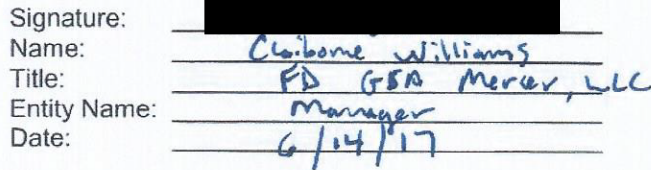 Signature:
Name: Claiborne Williams
Title: FD GSA Mercer, LLC
Entity Name: Manager
Date: 6/14/17